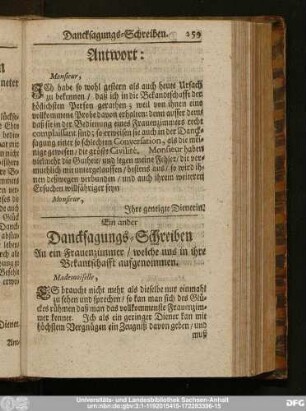 Dancksagungs-Schreiben. 259
Antwort:
Monsieur,
ICh habe so wohl gestern als auch heute Ursach
zu bekennen / daß ich in die Bekantschafft der
höflichsten Person gerathen / weil von ihnen eine
vollkommene Probe davon erhalten; denn ausser dem
daß sie in der Bedienung eines Frauenzimmers recht
complaisant sind; so erweisen sie auch in der Danck-
sagung einer so schlechten Conversation, als die mei-
nige gewesen / die gröste Civilité. Monsieur haben
vielmehr die Gutheit und legen meine Fehler / die ver-
muthlich mit untergelauffen / bestens aus / so wird ih-
nen deßwegen verbunden / und auch ihrem weitern
Ersuchen willfähriger seyn
Monsieur,
Ihre geneigte Dienerin.
Ein ander
Dancksagungs-Schreiben
An ein Frauenzimmer / welche uns in ihre
Bekantschafft aufgenommen.
Mademoiselle,
ES braucht nicht mehr als dieselbe nur einmahl
zu sehen und sprechen / so kan man sich des Glü-
ckes rühmen daß man das vollkommenste Frauenzim-
mer kenne. Ich als ein geringer Diener kan mit
höchstem Vergnügen ein Zeugniß davon geben / und
muß
Universitäts- und Landesbibliothek Sachsen-Anhalt
urn:nbn:de:gbv:3:1-1192015415-172283396-15